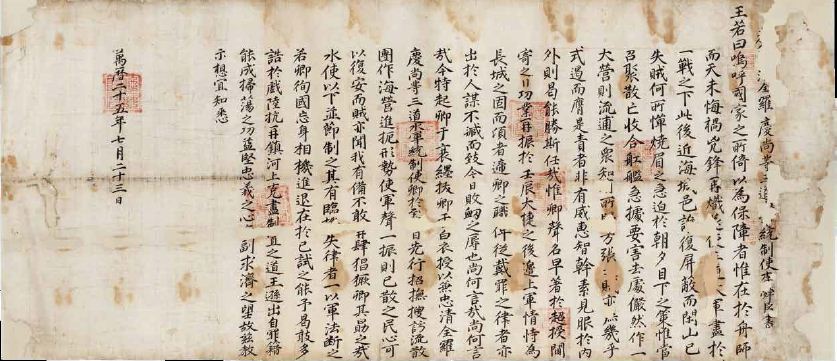 全羅慶尚等三道 統制使李舜臣書
王若曰嗚呼國家之所倚以爲保障者惟在於舟師
而天未悔禍兇鋒再熾 使三 大軍盡於
一戰之下此後近海城邑誰復屏蔽而閑山已
失賊何所憚燒眉之急迫於朝夕目下之策惟當
召聚散亡收合舡艦急據要害去處儼然作一
大營則流逋之衆知 所 方張 賊亦 幾乎
式遏而膺是責者非有威惠智幹素見服於內
外則曷能勝斯任哉惟卿聲名早著於超授閫
寄之日功業再振於壬辰大捷之後邊上軍情恃爲
長城之固而頃者遞卿之職俾從戴罪之律者亦
出於人謀不臧而致今日敗衂之辱也尚何言哉尚何言
哉今特起卿于衰絰拔卿于白衣授以兼忠淸全羅
慶尚等三道水軍統制使卿於至日先行招撫搜訪流散
團作海營進扼形勢使軍聲一振則已散之民心可
以復安而賊亦聞我有備不敢再肆猖獗卿其勗之哉
水使以下並節制之其有臨 失律者一以軍法斷之
若卿徇國忘身相機進退在於已試之能予曷敢多
誥於戲陸抗再鎭河上克盡制置之道王遜出自罪籍
能成掃蕩之功益堅忠義之心 副求濟之望故玆敎
示想宜知悉
萬曆二十五年七月二十三日